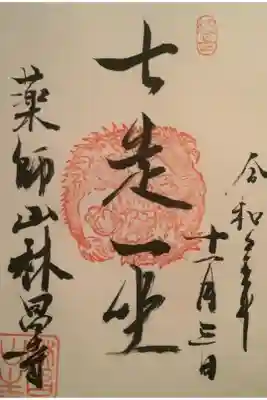 令和年
十一月三日
七走一坐
薬師山林昌寺